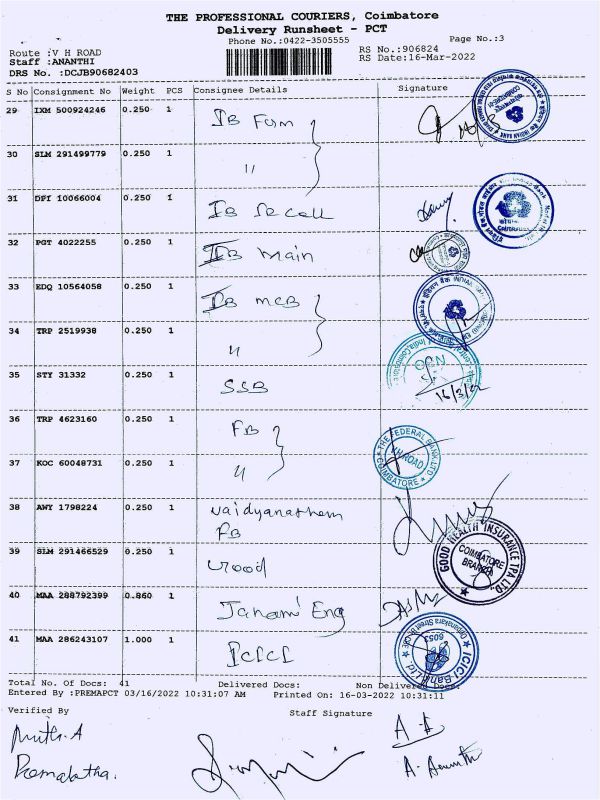 THE PROFESSIONAL COURIERS, Coimbatore
Delivery Runsheet - PCT
Phone No.:0422-3505555
Page No.:3
Route :V H ROAD
RS No.:906824
Staff :ANANTHI
RS Date:16-Mar-2022
DRS No. :DCJB90682403
S No Consignment No Weight PCS Consignee Details Signature
29 IXM 500924246 0.250 1 IB Fum
30 SLM 291499779 0.250 1 "
31 DPI 10066004 0.250 1 IB
32 PGT 4022255 0.250 1 IB main
33 EDQ 10564058 0.250 1 IB MCB
34 TRP 2519938 0.250 1 "
35 STY 31332 0.250 1 SSB
16/3/22
36 TRP 4623160 0.250 1 FB
THE FEDERAL BANK LTD
COIMBATORE
37 KOC 60048731 0.250 1 "
38 AWY 1798224 0.250 1 Vaidyanathem
FB
39 SLM 291466529 0.250
GOOD HEALTH INSURANCE TPA LTD.
COIMBATORE
BRANCH
40 MAA 288792399 0.860 Janani Eng
41 MAA 286243107 1.000 1 ICICI
ICICI Bank Ltd
6053
Total No. Of Docs: 41 Delivered Docs: Non Delivered Docs:
Entered By :PREMAPCT 03/16/2022 10:31:07 AM Printed On: 16-03-2022 10:31:11
Verified By
Staff Signature
Premalatha.